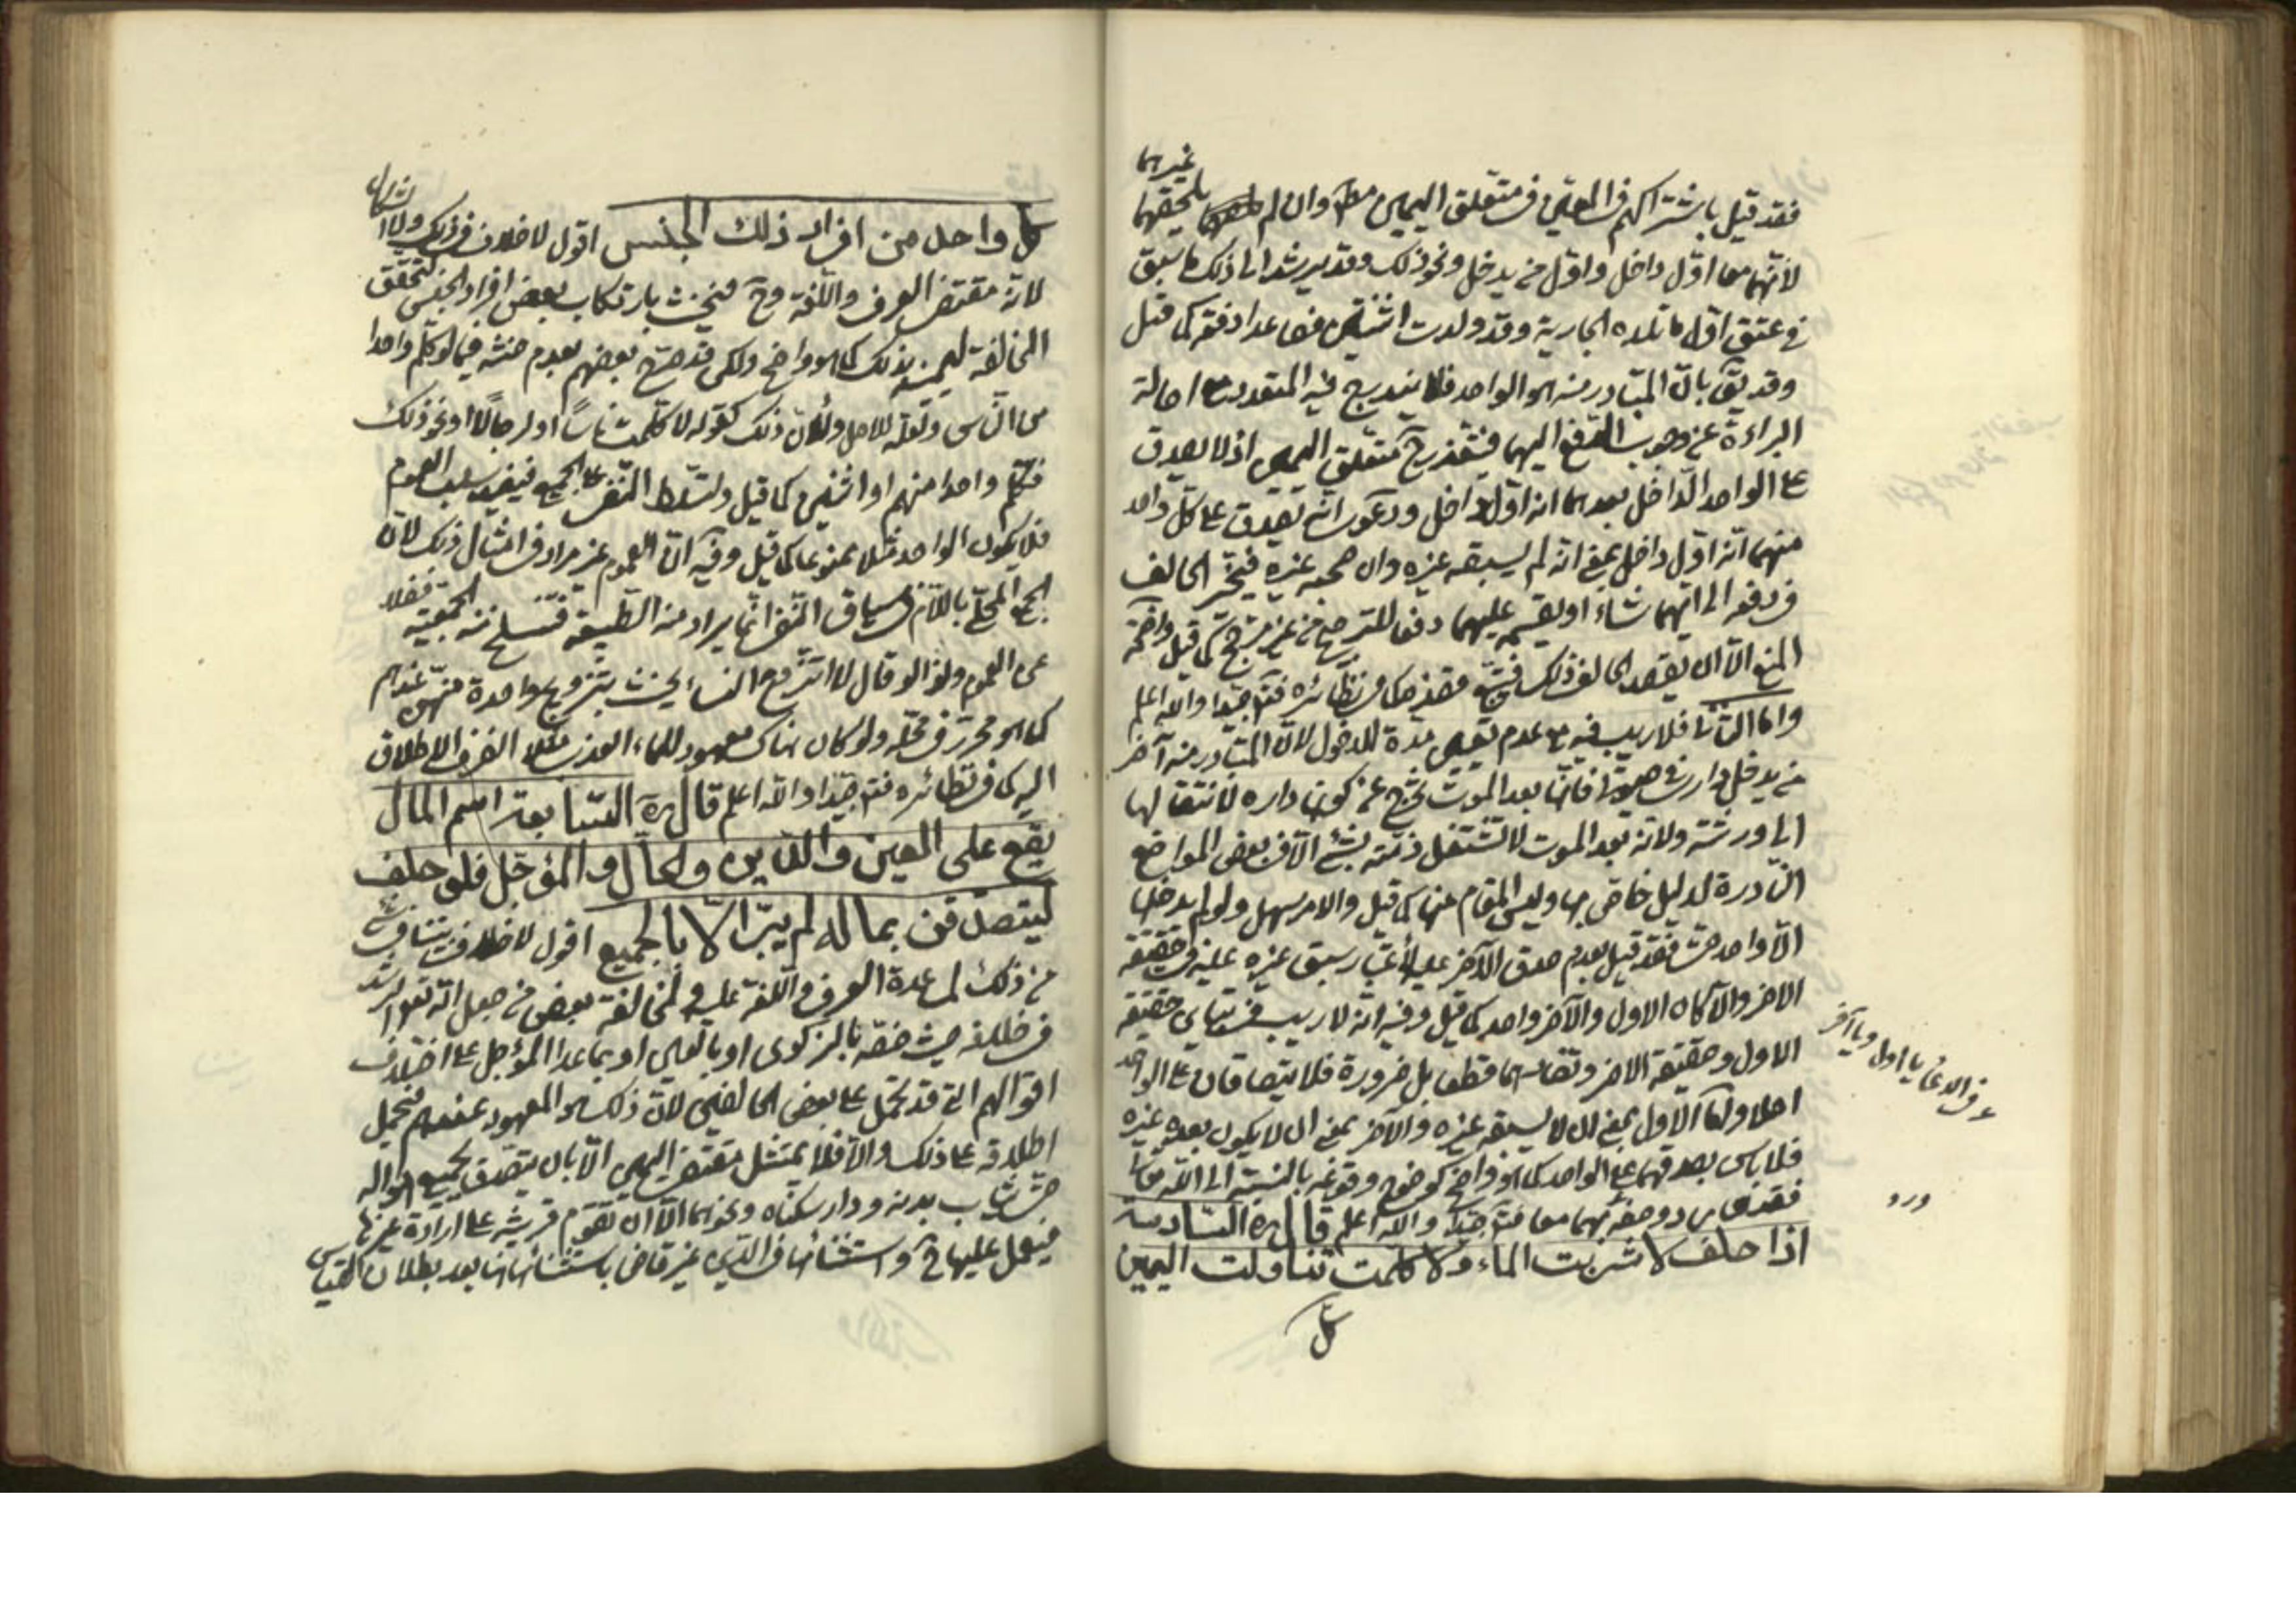 فقد قيل باشتراكهم في المعنى في متعلق اليمين مط وان لم يلحقهما غيرهما
لانهما معا اول داخل واول من يدخل ونحو ذلك وقد يرشد الى ذلك ما سبق
في عتق اول ما تلده الجارية وقد ولدت اثنين فصاعدا دفعة كما قيل
وقد يق بان المتبادر منه هو الواحد فلا يندرج فيه المتعدد اصالة
البراءة عن وجوب الدفع اليهما متعلق اليمين اذ لا يصدق
على الواحد الداخل بعدهما انه اول داخل ودعوى انه تصدق على كل واحد
منهما انه اول داخل بمعنى انه لم يسبقه غيره وان صحبه غيره فيتخير الحالف
في دفعه الى ايهما شاء او يقسمه عليهما دفعا للترجيح من غير مرجح كما قيل واضحة
المنع الا ان يقصد الحالف ذلك قصده كما في نظائره فتم جيدا والله اعلم
واما الثاني فلا ريب فيه مع عدم تعيين مدة للدخول لان المتبادر منه آخر
من يدخل دارى في حيوته فانها بعد الموت تخرج عن كونها داره لانتقالها
الى ورثته ولانه بعد الموت لا تشتغل ذمته بشئ الا في بعض المواضع
النادرة لدليل خاص بها وليس المقام منها كما قيل والامر سهل ولو لم يدخلها
الا واحد فقد قيل بعدم صدق الآخر عليه لاعتبار سبق غيره عليه في حقيقة
الاخر والا كان الاول والآخر واحد كما قيل وفيه انه لا ريب في تباين حقيقة
الاول وحقيقة الاخر وتضادهما قطعا بل ضرورة فلا يتصادقان على الواحد
اصلا واما الاول بمعنى ان لا يسبقه غيره والآخر بمعنى ان لا يكون بعده غيره
فلا باس بصدقهما على الواحد كما هو واضح كوضوح وقوعه بالنسبة الى الله تعالى
فقد وصفه بهما معا فتم جيدا والله اعلم قال ره السادسة
اذا حلف لا شربت الماء ولا كلمت تناولت اليمين
كل
في الدعاء يا اول ويا آخر
ورد
كل واحد من افراد ذلك الجنس اقول لا خلاف في ذلك ولا اشكال
لانه مقتضى العرف واللغة وح فيحنث بارتكاب بعض افراد الجنس لتحقق
المخالفة ليمينه بذلك كما هو واضح ولكن قد صرح بعضهم بعدم حنثه فيما لو كلم واحدا
من الناس ولعله للاصل ولان ذلك كقوله لا كلمت ناسا او رجالا او نحو ذلك
فكلم واحدا منهم او اثنين كما قيل ولتسلط النفي على الجميع فيفيد سلب العموم
فلا يكون الواحد مثلا ممنوعا كما قيل وفيه ان العموم غير مراد في امثال ذلك لان
الجمع المحلى باللام في سياق النفي انما يراد منه الطبيعة فتنسلخ منه الجمعية فضلا
عن العموم ولذا لو قال لا اتزوج النساء يحنث بتزويج واحدة منهن عندهم
كما هو محرر في محله ولو كان هناك معهود للماء العذب مثلا انصرف الاطلاق
اليه كما في نظائره فتم جيدا والله اعلم قال ره السابعة اسم المال
يقع على العين والدين والحال والمؤجل فلو حلف
ليتصدقن بماله لم يبر الا بالجميع اقول لا خلاف
من ذلك لمساعدة العرف واللغة عليه ولمخالفة بعض من جعل الله تعالى الرشد
في خلافه حيث خصه بالزكوى او بالعين او بما عدا المؤجل على اختلاف
اقوالهم التي قد تحمل على بعض الحالفين لان ذلك هو المعهود عندهم فيحمل
اطلاقه على ذلك والا فلا يمتثل مقتضى اليمين الا بان يتصدق بجميع امواله
حتى ثياب بدنه ودار سكناه ونحوهما الا ان تقوم قرينة على ارادة غيرها
فيعمل عليها ح واستثنائها في الدين غير قاض باستثنائها هنا بعد بطلان القياس